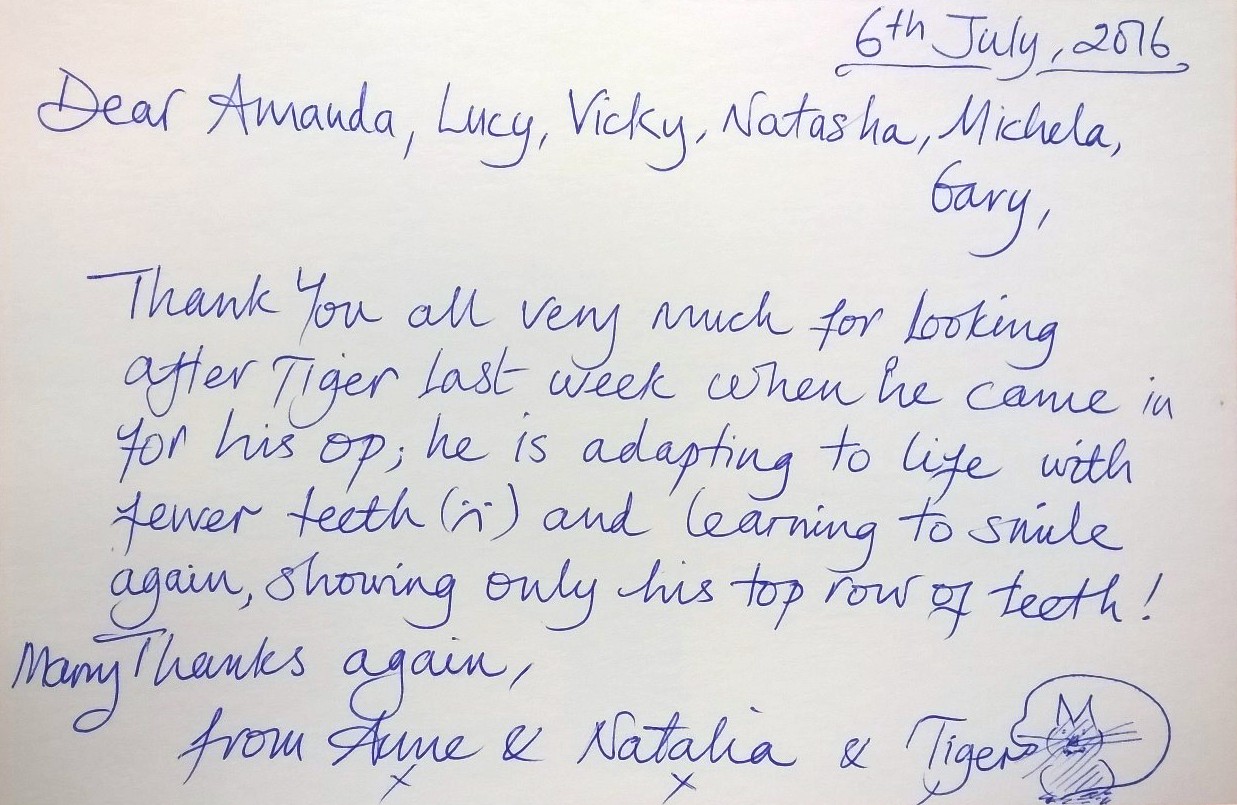 6th July, 2016
Dear Amanda, Lucy, Vicky, Natasha, Michela,
Gary,
Thank You all very much for looking
after Tiger last week when he came in
for his op; he is adapting to life with
fewer teeth (:() and learning to smile
again, showing only his top row of teeth!
Many Thanks again,
from Anne & Natalia & Tiger
x x x